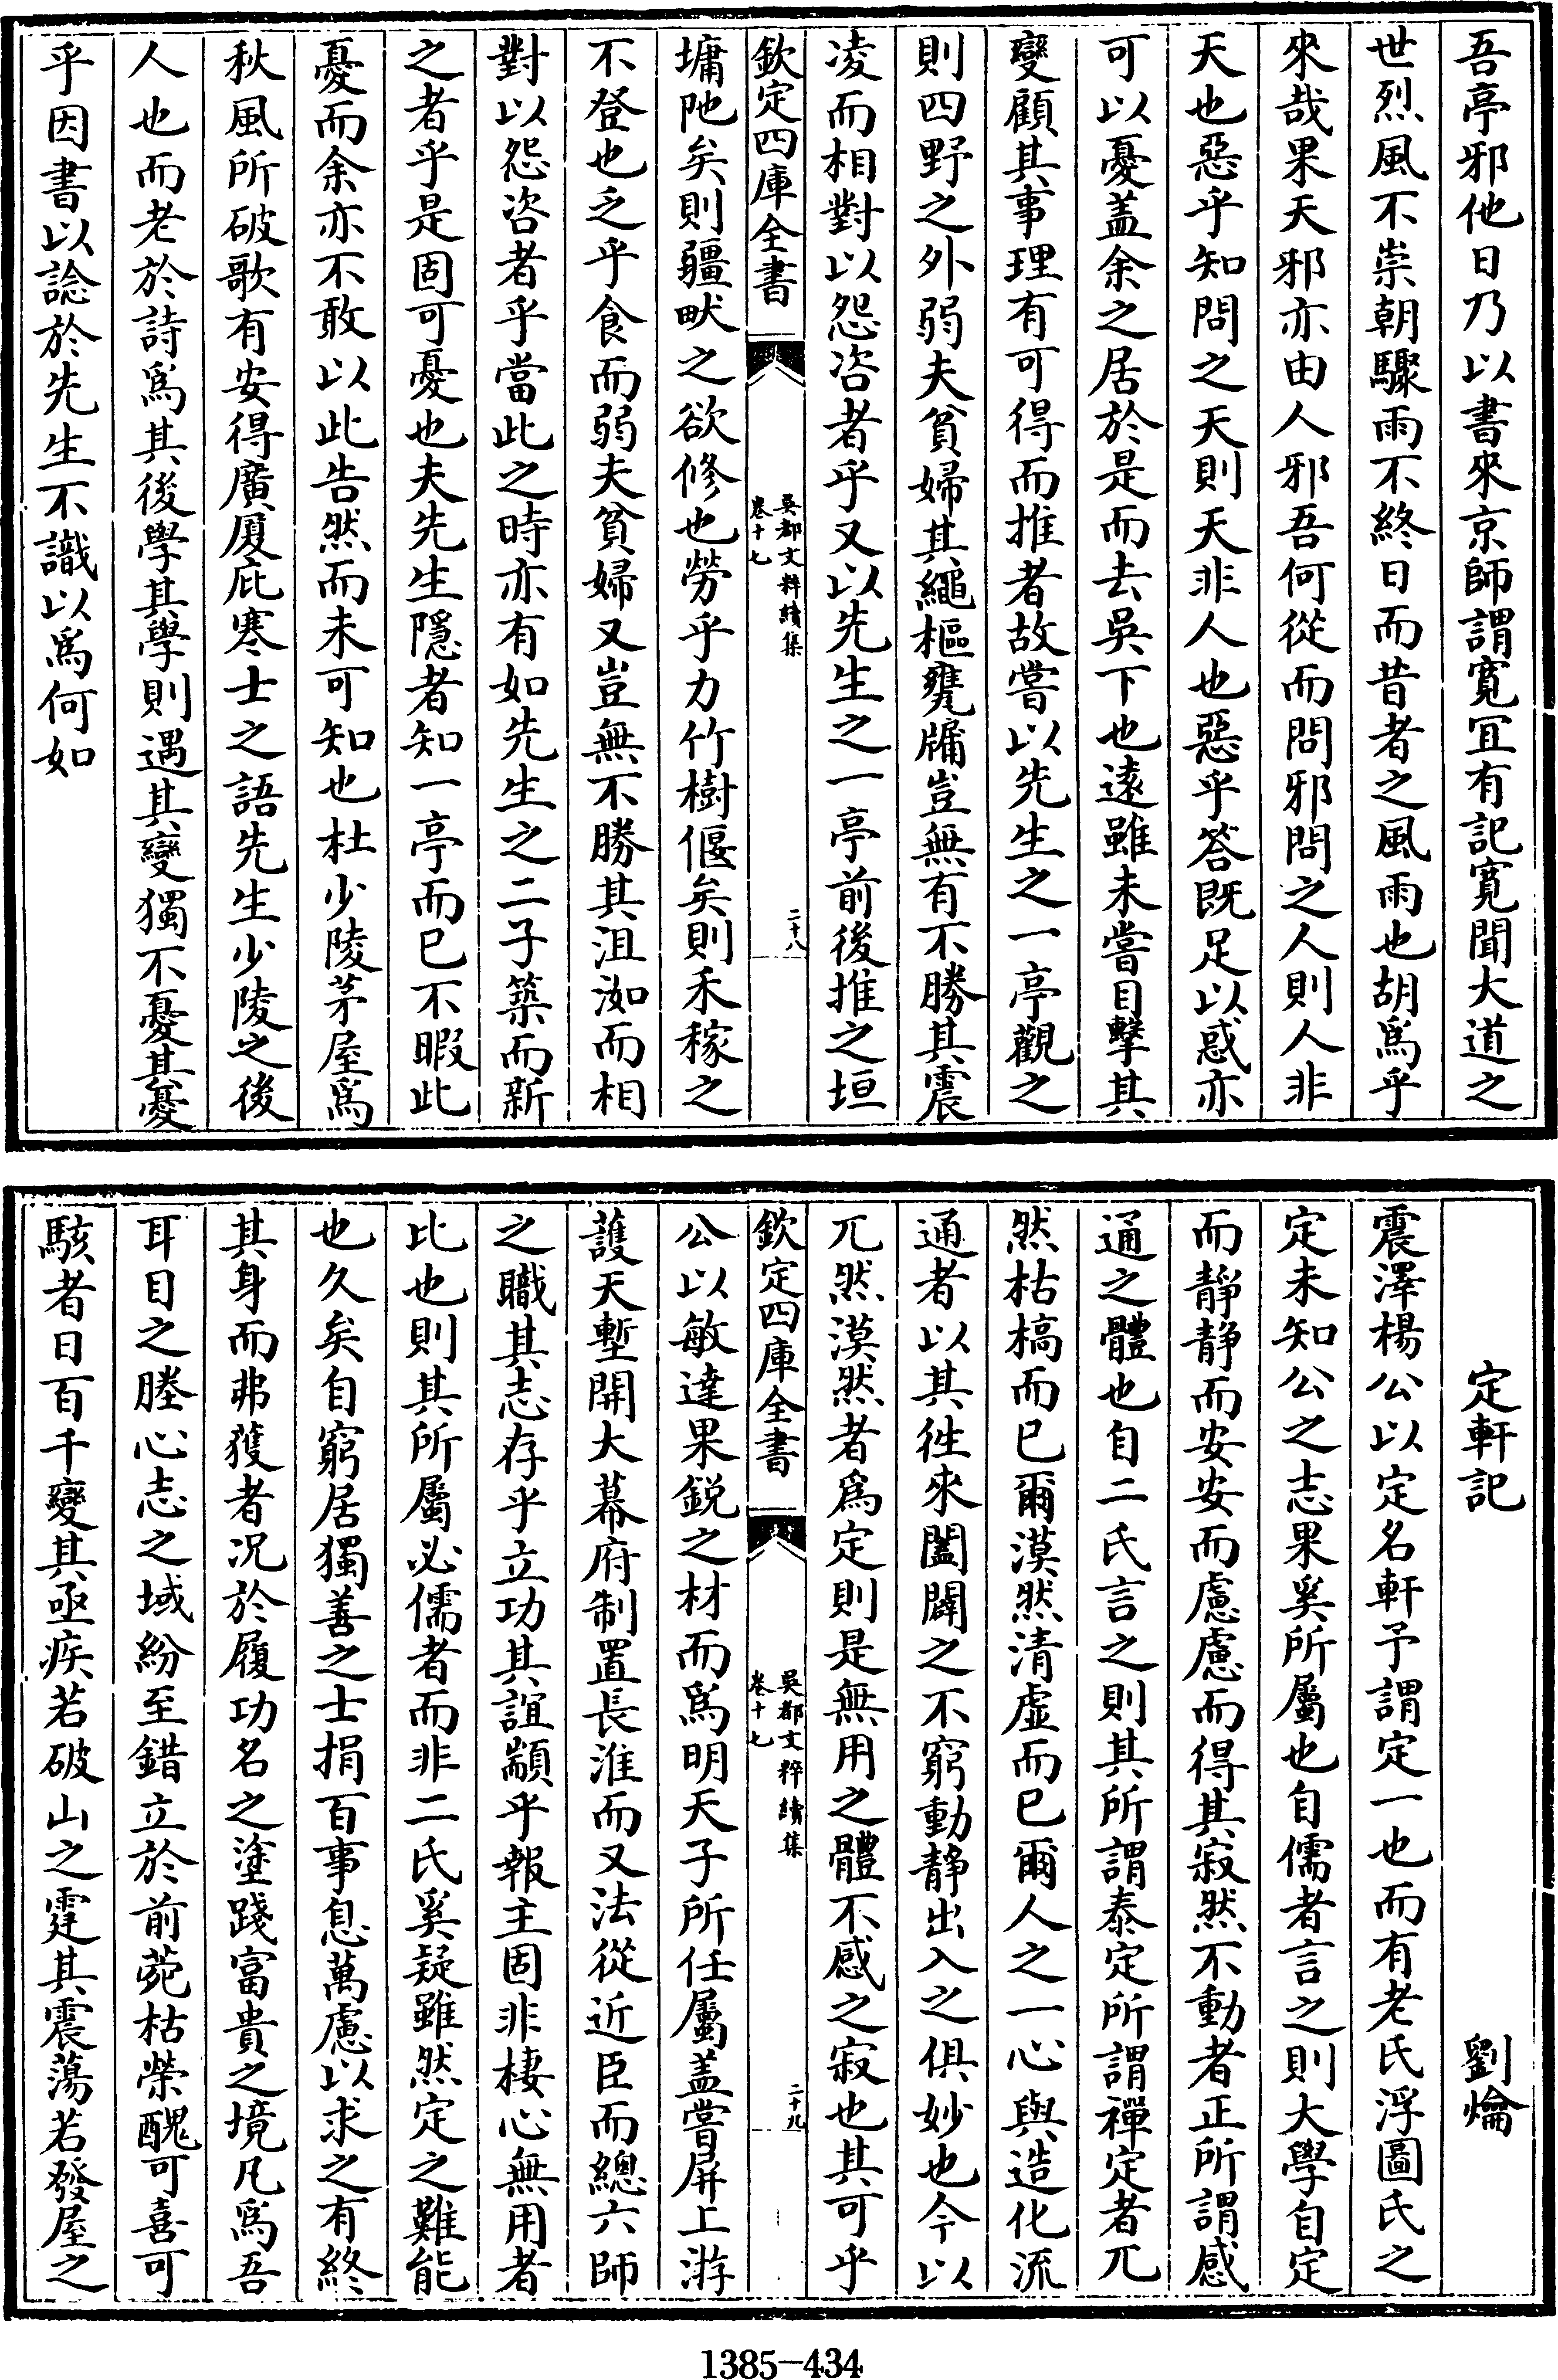 吾亭邪他日乃以書來京師謂寛宜有記寛聞大道之
世烈風不崇朝驟雨不終日而昔者之風雨也胡爲乎
來哉果天邪亦由人邪吾何從而問邪問之人則人非
天也惡乎知問之天則天非人也惡乎答既足以惑亦
可以憂蓋余之居於是而去吳下也遠雖未嘗目擊其
變顧其事理有可得而推者故嘗以先生之一亭觀之
則四野之外弱夫貧婦其繩樞甕牖豈無有不勝其震
凌而相對以怨咨者乎又以先生之一亭前後推之垣
欽定四庫全書
吳都文粹續集
卷十七
二十八
墉阤矣則疆畎之欲修也勞乎力竹樹偃矣則禾稼之
不登也乏乎食而弱夫貧婦又豈無不勝其沮洳而相
對以怨咨者乎當此之時亦有如先生之二子築而新
之者乎是固可憂也夫先生隱者知一亭而已不暇此
憂而余亦不敢以此告然而未可知也杜少陵茅屋爲
秋風所破歌有安得廣厦庇寒士之語先生少陵之後
人也而老於詩爲其後學其學則遇其變獨不憂其憂
乎因書以諗於先生不識以爲何如
定軒記
劉爚
震澤楊公以定名軒予謂定一也而有老氏浮圖氏之
定未知公之志果奚所屬也自儒者言之則大學自定
而靜靜而安安而慮慮而得其寂然不動者正所謂感
通之體也自二氏言之則其所謂泰定所謂禪定者兀
然枯槁而已爾漠然清虚而已爾人之一心與造化流
通者以其徃來闔闢之不窮動靜出入之俱妙也今以
兀然漠然者爲定則是無用之體不感之寂也其可乎
欽定四庫全書
吳都文粹續集
卷十七
二十九
公以敏達果鋭之材而爲明天子所任屬蓋嘗屏上游
護天塹開大幕府制置長淮而又法從近臣而總六師
之職其志存乎立功其誼顓乎報主固非棲心無用者
比也則其所屬必儒者而非二氏奚疑雖然定之難能
也久矣自窮居獨善之士捐百事息萬慮以求之有終
其身而弗獲者况於履功名之塗踐富貴之境凡爲吾
耳目之塍心志之域紛至錯立於前菀枯榮醜可喜可
駭者日百千變其亟疾若破山之霆其震蕩若發屋之
1385—434